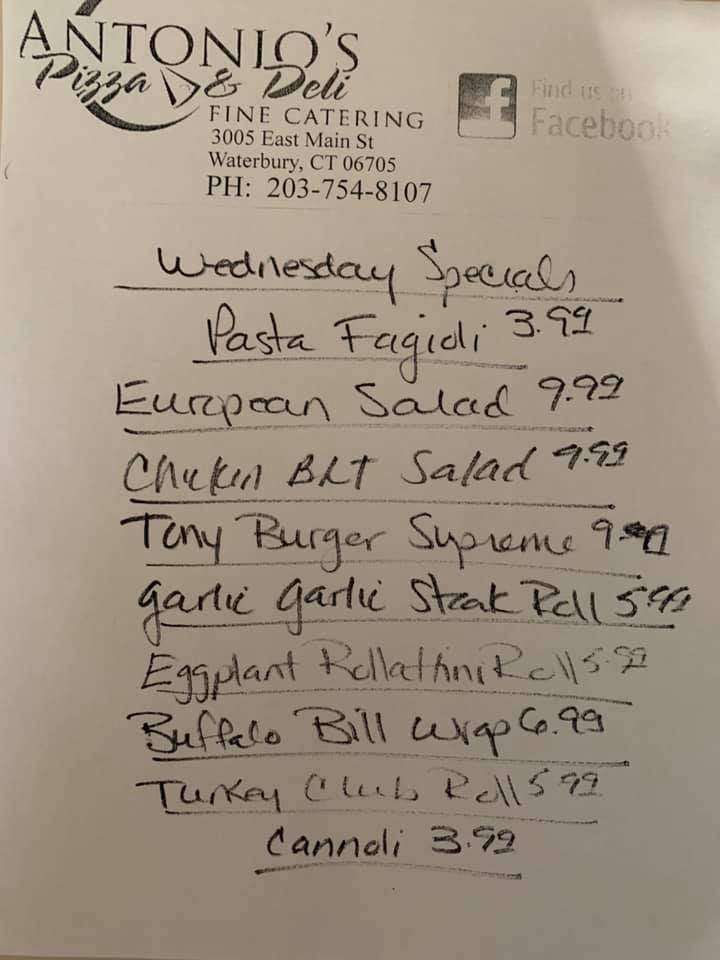 ANTONIO'S
Pizza & Deli
FINE CATERING
3005 East Main St
Waterbury, CT 06705
PH: 203-754-8107
f Find us on
Facebook
Wednesday Specials
Pasta Fagioli 3.99
European Salad 9.99
Chicken BLT Salad 9.99
Tony Burger Supreme
Garlic Garlic Steak Roll 5.99
Eggplant Rollathini Roll 5.99
Buffalo Bill Wrap 6.99
Turkey Club Roll 5.99
Cannoli 3.99